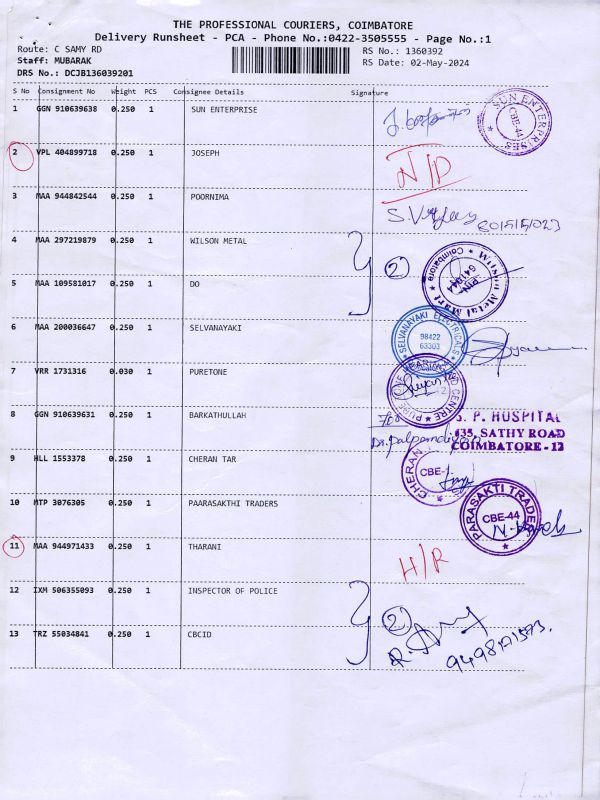 THE PROFESSIONAL COURIERS, COIMBATORE
Delivery Runsheet - PCA - Phone No.:0422-3505555 - Page No.:1
Route: C SAMY RD
RS No.: 1360392
Staff: MUBARAK
RS Date: 02-May-2024
DRS No.: DCJB136039201
S No Consignment No Weight PCS Consignee Details Signature
1 GGN 910639638 0.250 1 SUN ENTERPRISE
SUN ENTERPRISES CBE-44
2 VPL 404899718 0.250 1 JOSEPH N/D
3 MAA 944842544 0.250 1 POORNIMA
4 MAA 297219879 0.250 1 WILSON METAL
2
Wilson Metal Mart Coimbatore
5 MAA 109581017 0.250 1 DO
6 MAA 200036647 0.250 1 SELVANAYAKI
SELVANAYAKI ELECTRICALS 98422 63303
7 VRR 1731316 0.030 1 PURETONE
8 GGN 910639631 0.250 1 BARKATHULLAH
P. HOSPITAL
435, SATHY ROAD
COIMBATORE - 12
9 HLL 1553378 0.250 1 CHERAN TAR
CHERAN CBE-
10 MTP 3076305 0.250 1 PAARASAKTHI TRADERS
PARASAKTI TRADERS CBE-44
11 MAA 944971433 0.250 1 THARANI H/R
12 IXM 506355093 0.250 1 INSPECTOR OF POLICE
2
13 TRZ 55034841 0.250 1 CBCID